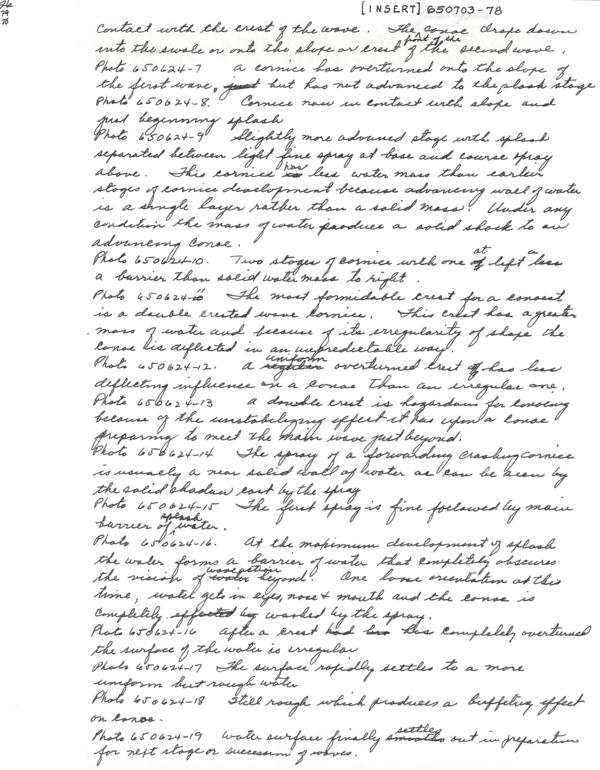 76
79
78
[INSERT] 650703-78
Contact with the crest of the wave. The canoe drops down
into the swale or onto the slope or crest front of the of the second wave.
Photo 650624-7 a cornice has overturned onto the slope of
the first wave, just but has not advanced to the plash stage
Photo 650624-8. Cornice now in contact with slope and
just beginning splash
Photo 650624-9 Slightly more advanced stage with splash
separated between light fine spray at base and course spray
above. This cornice has less water mass than earlier
stages of cornice development because advancing wall of water
is a single layer rather than a solid mass. Under any
condition the mass of water produce a solid shock to an
advancing canoe.
Photo 650624-10. Two stages of cornice with one at of left a less
a barrier than solid water mass to right.
Photo 650624- The most formidable crest for a canoeist
is a double crested wave cornice. This crest has a greater
mass of water and because of its irregularity of shape the
canoe is deflected in an unpredictable way.
Photo 650624-12. a regular uniform overturned crest of has less
deflecting influence on a canoe than an irregular one.
Photo 650624-13 a double crest is hazardous for canoeing
because of the unstabilizing effect it has upon a canoe
preparing to meet the main wave just beyond.
Photo 650624-14 The spray of a forwarding crashing cornice
is usually a near solid wall of water as can be seen by
the solid shadow cast by the spray
Photo 650624-15 The first spray is fine followed by main
barrier of splash water.
Photo 650624-16. At the maximum development of splash
the water forms a barrier of water that completely obscures
the vision of water wave action beyond. One loses orientation at this
time, water gets in eyes, nose & mouth and the canoe is
completely effected by washed by the spray.
Photo 650624-16 after a crest had has completely overturned
the surface of the water is irregular
Photo 650624-17 The surface rapidly settles to a more
uniform but rough water
Photo 650624-18 Still rough which produces a buffeting effect
on canoe.
Photo 650624-19 water surface finally smooths settles out in preparation
for next stage or succession of waves.